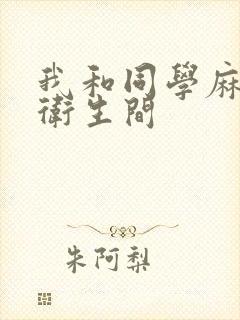 我和同學麻
衛生間
朱阿梨